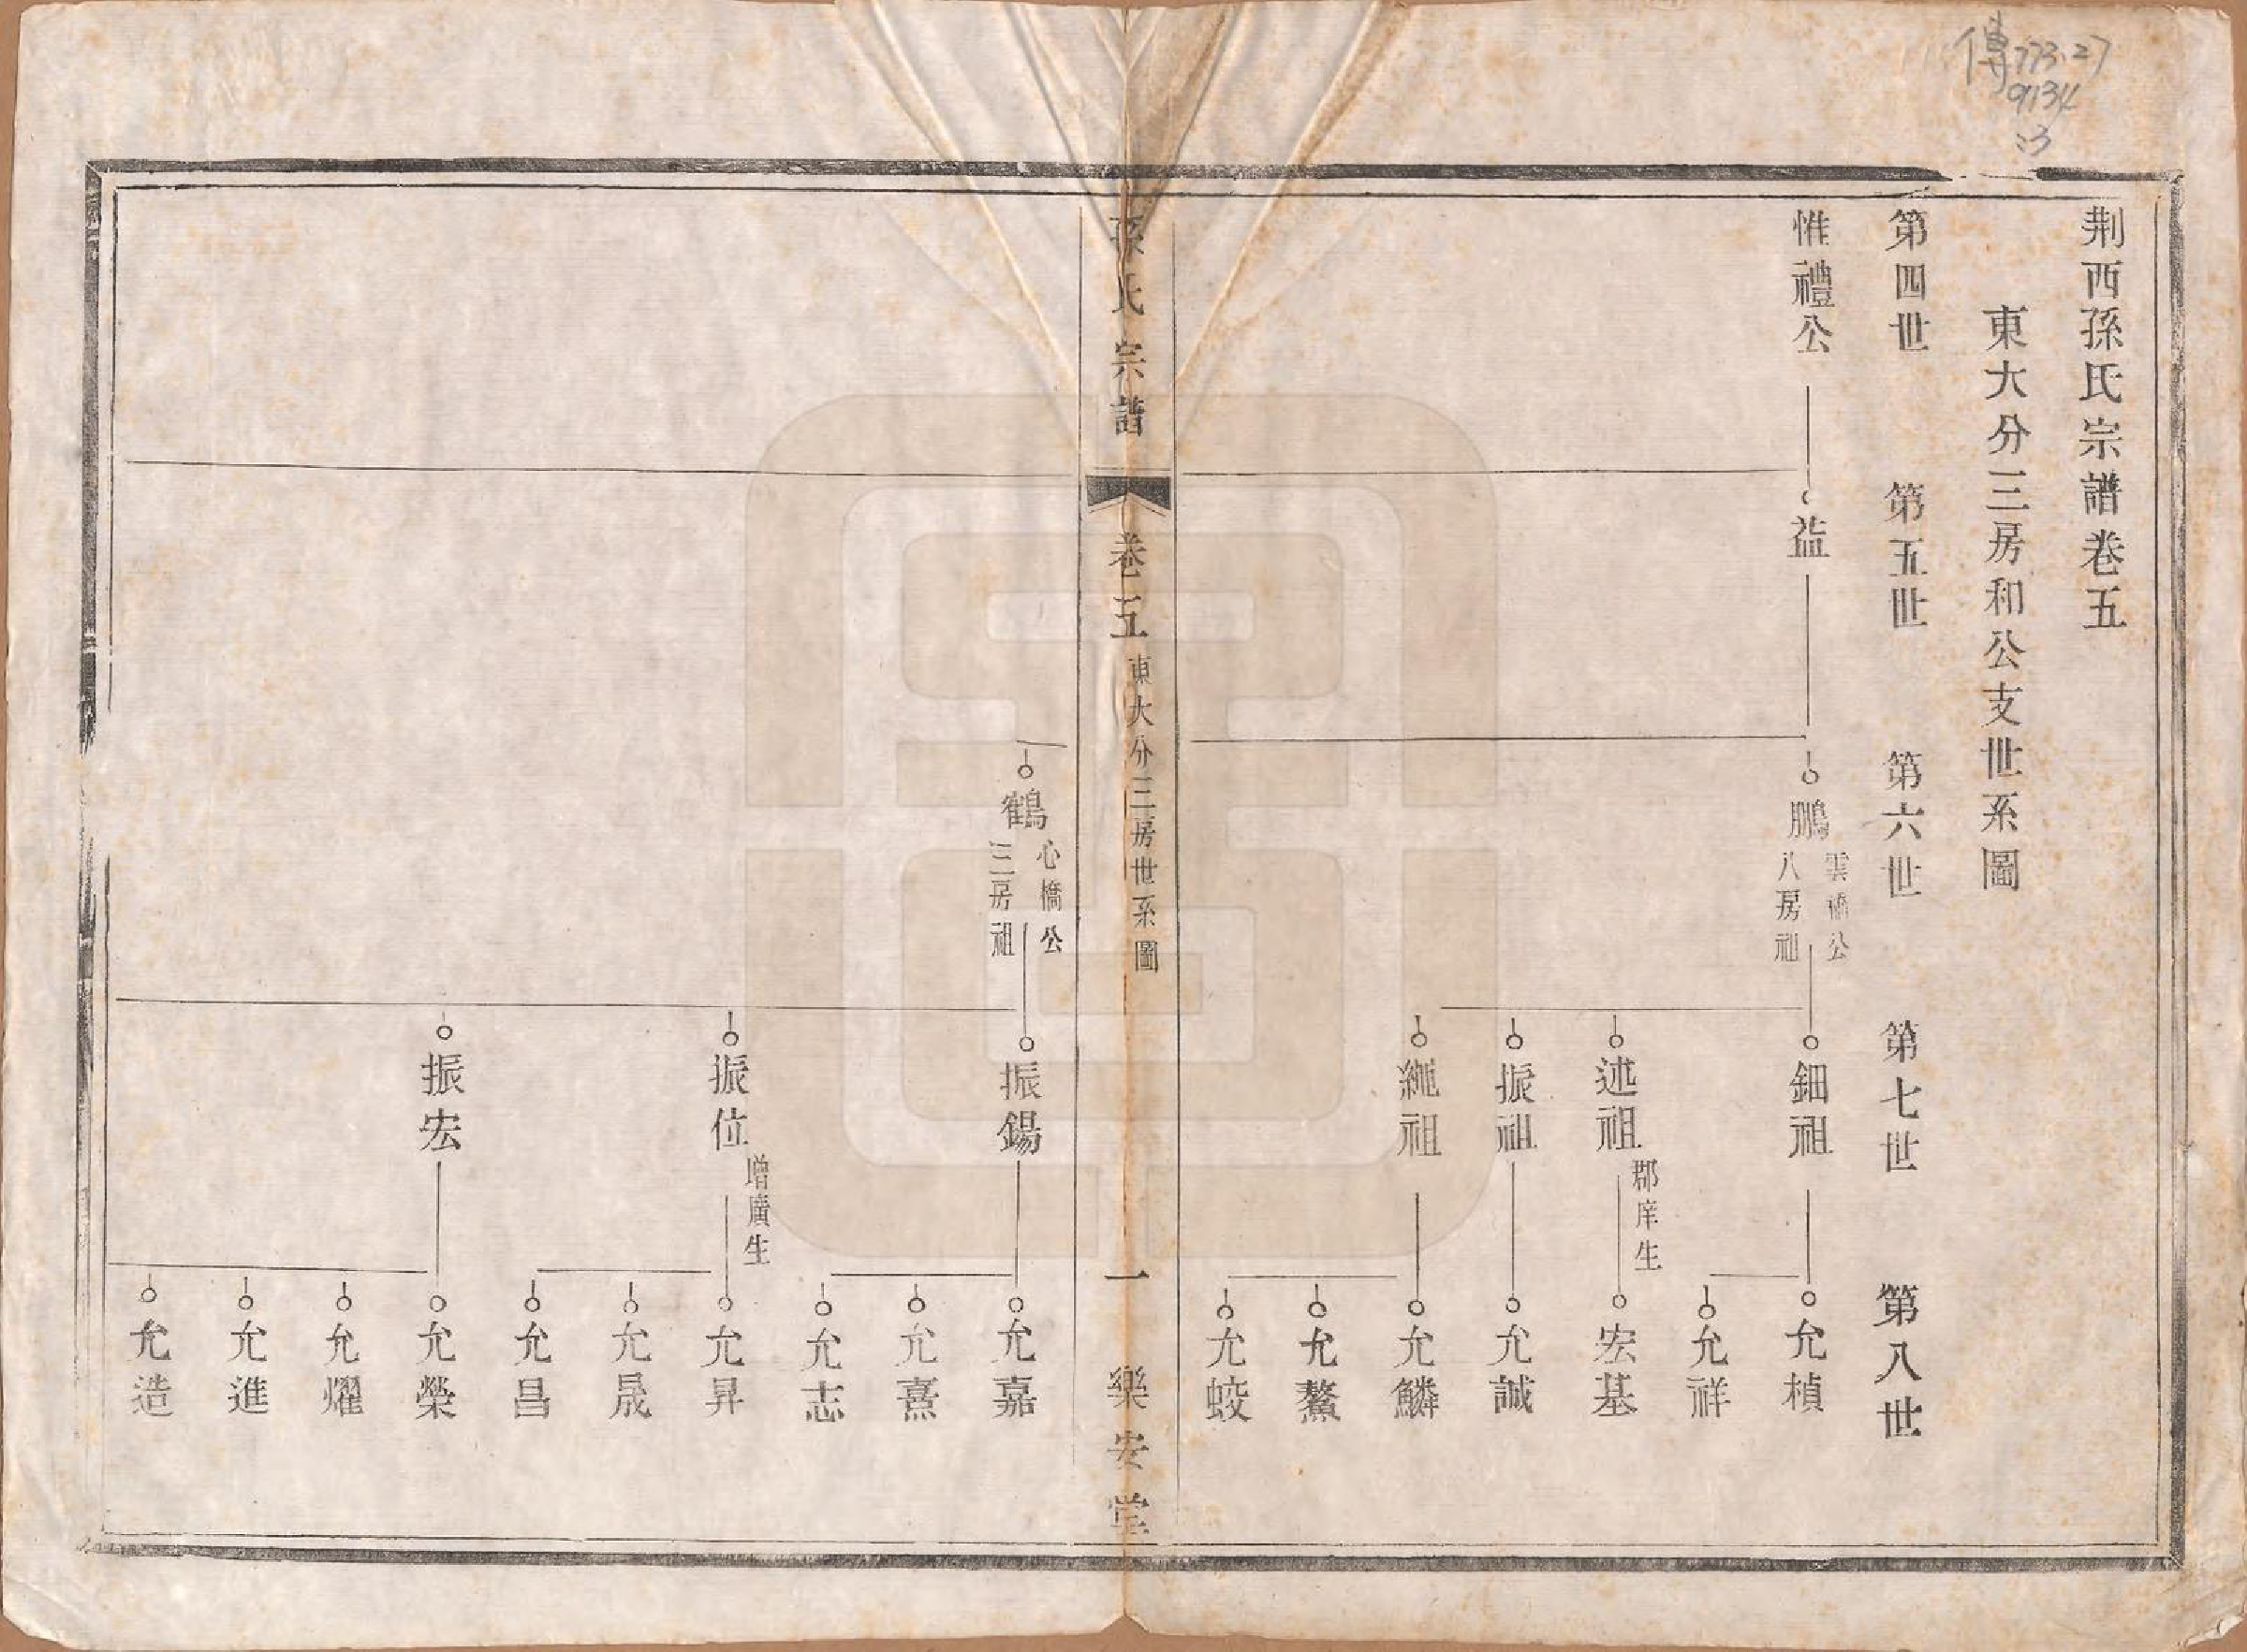 傳773.27
9134
:3
荆西孫氏宗譜卷五
東大分三房和公支世系圖
第四世
第五世
第六世
第七世
第八世
惟禮公
益
鵬
雲橋公
八房祖
鈿祖
允楨
允祥
述祖
郡庠生
宏基
振祖
允誠
繩祖
允鱗
允鰲
允蛟
孫氏宗譜
卷五
東大分三房世系圖
一
樂安堂
鶴
心橋公
三房祖
振錫
允嘉
允熹
允志
振位
增廣生
允昇
允晟
允昌
振宏
允榮
允燿
允進
允造